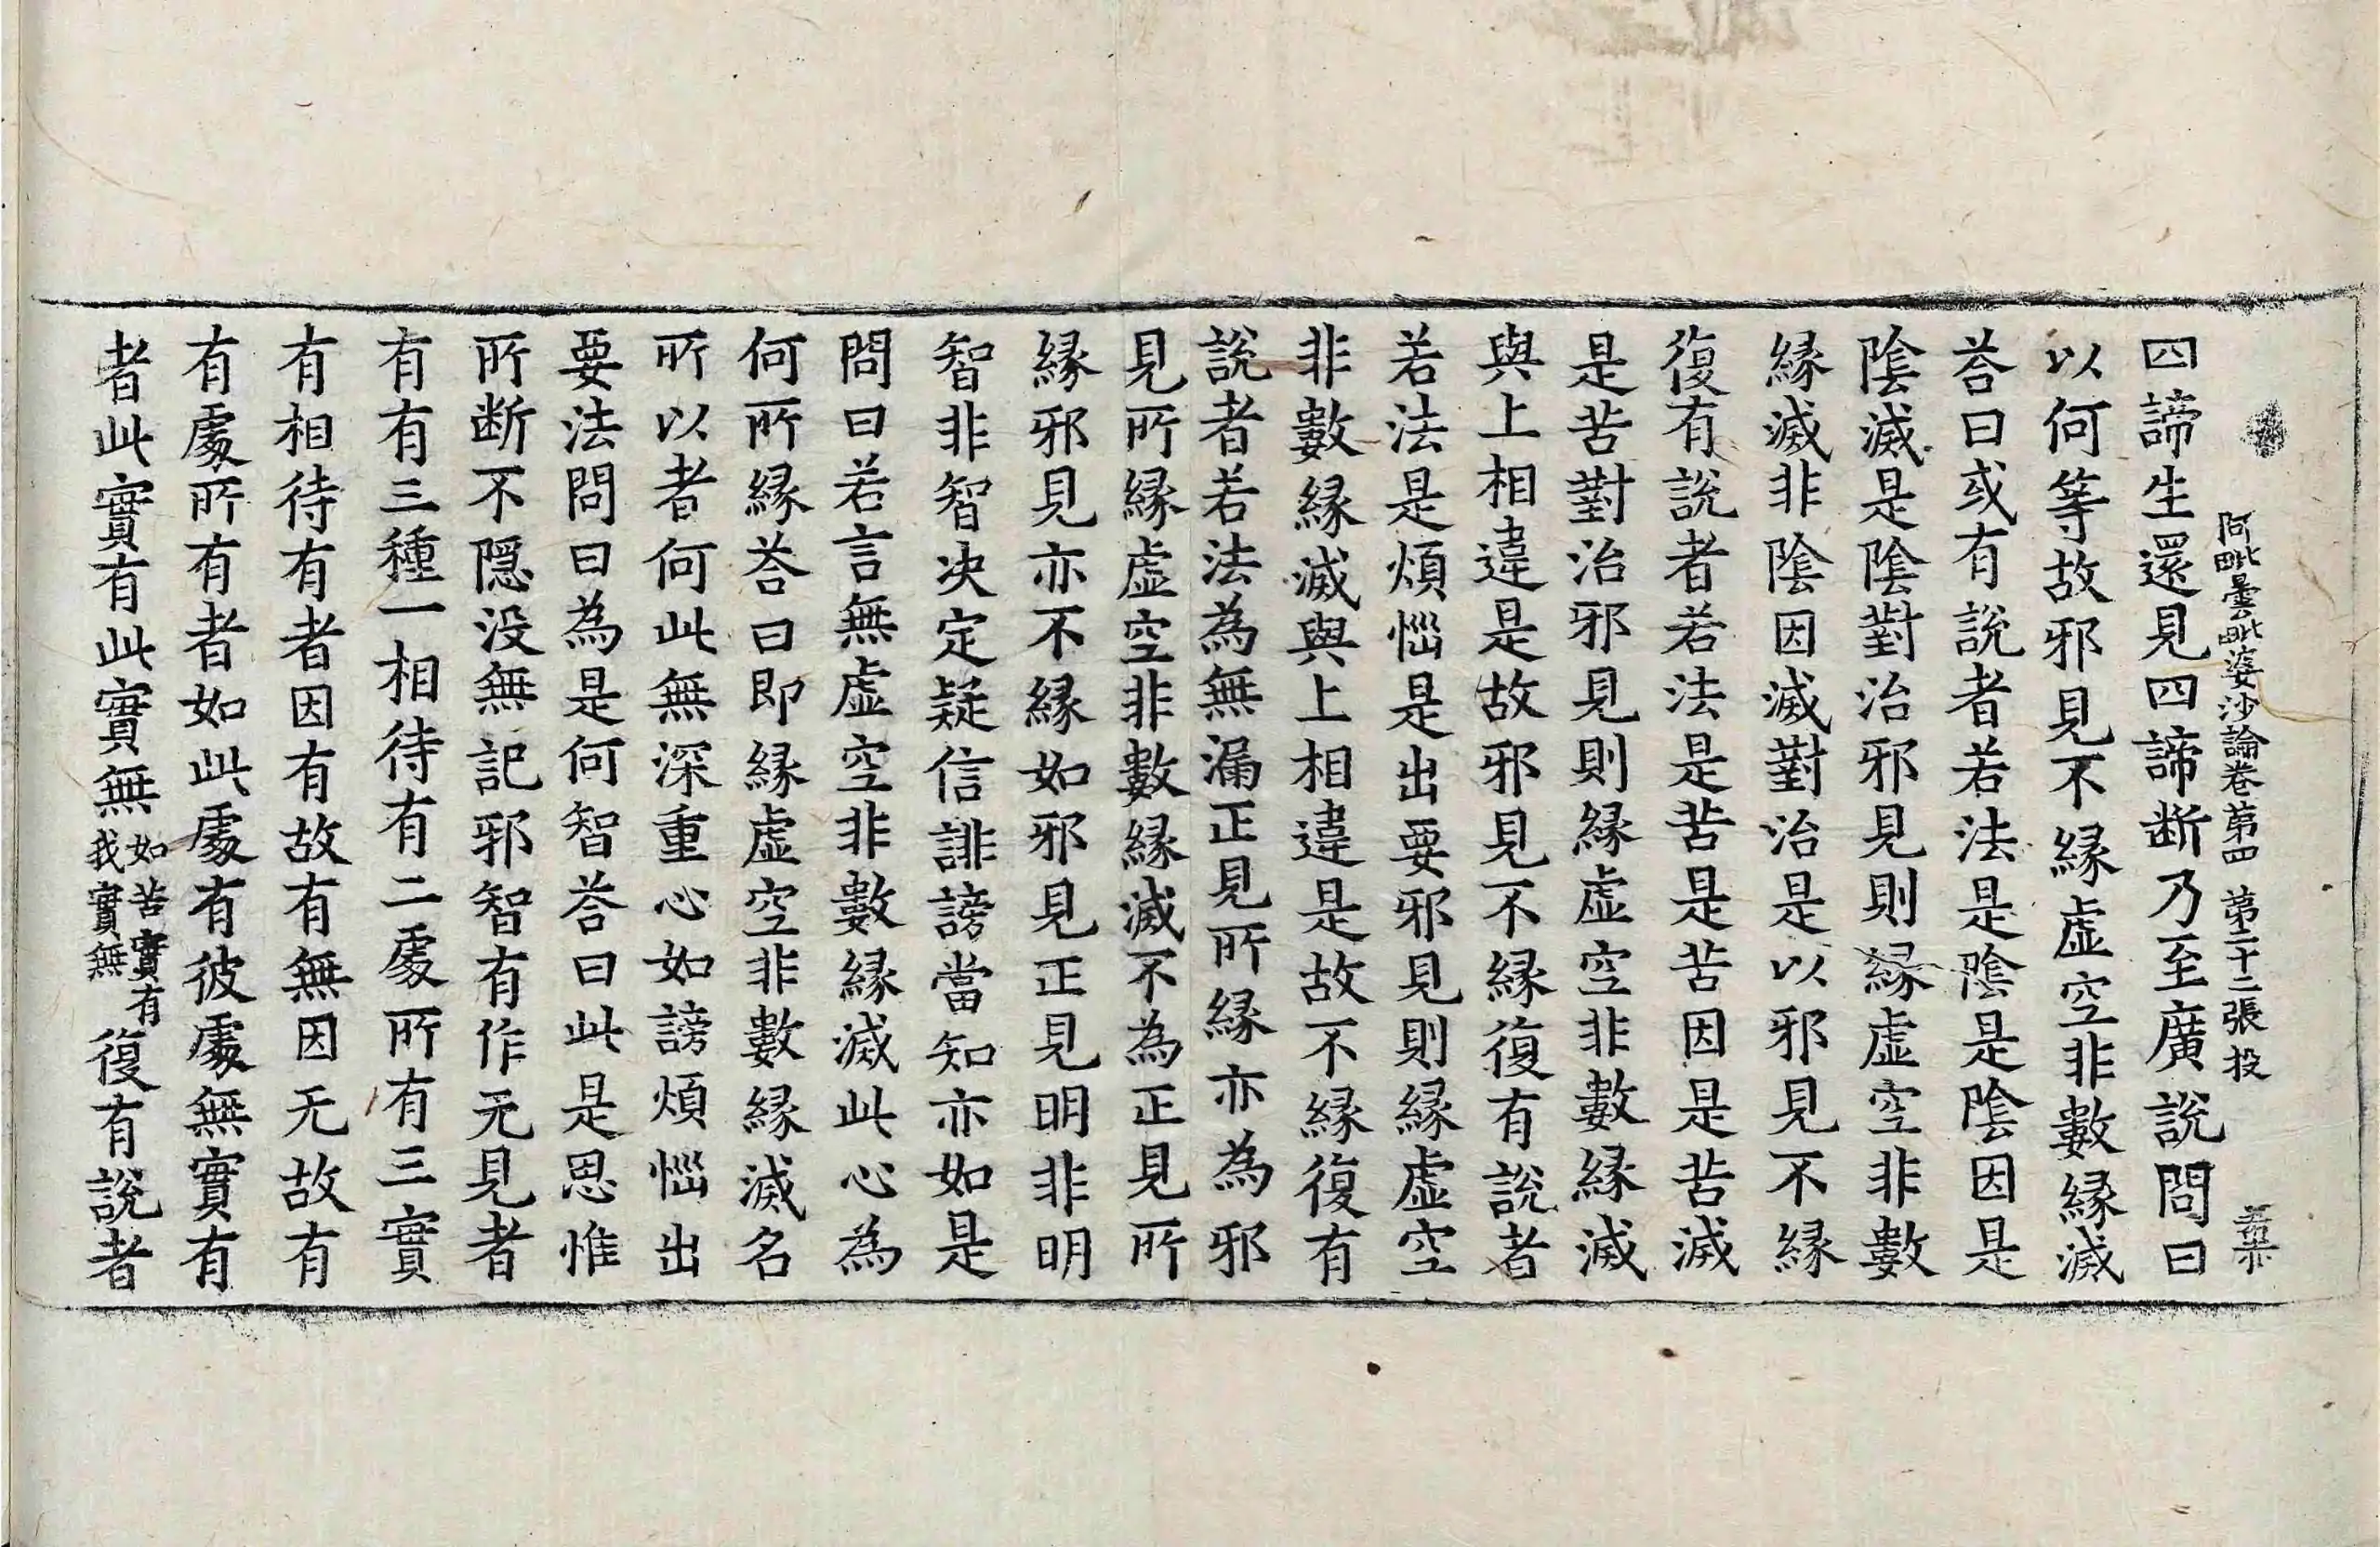 阿毗曇毗婆沙論卷第四 第二十二張 投
四諦生還見四諦断乃至廣說問曰
以何等故邪見不縁虛空非數縁滅
荅曰或有說者若法是陰是陰因是
陰滅是陰對治邪見則縁虛空非數
縁滅非陰陰因滅對治是以邪見不縁
復有說者若法是苦是苦因是苦滅
是苦對治邪見則縁虛空非數縁滅
與上相違是故邪見不縁復有說者
若法是煩惱是出要邪見則縁虛空
非數縁滅與上相違是故不縁復有
說者若法為無漏正見所縁亦為邪
見所縁虛空非數縁滅不為正見所
縁邪見亦不縁如邪見正見明非明
智非智决定疑信誹謗當知亦如是
問曰若言無虛空非數縁滅此心為
何所縁荅曰即縁虛空非數縁滅名
所以者何此無深重心如謗煩惱出
要法問曰為是何智荅曰此是思惟
所断不隱没無記邪智有作无見者
有有三種一相待有二處所有三實
有相待有者因有故有無因无故有
有處所有者如此處有彼處無實有
者此實有此實無如苦實有我實無復有說者